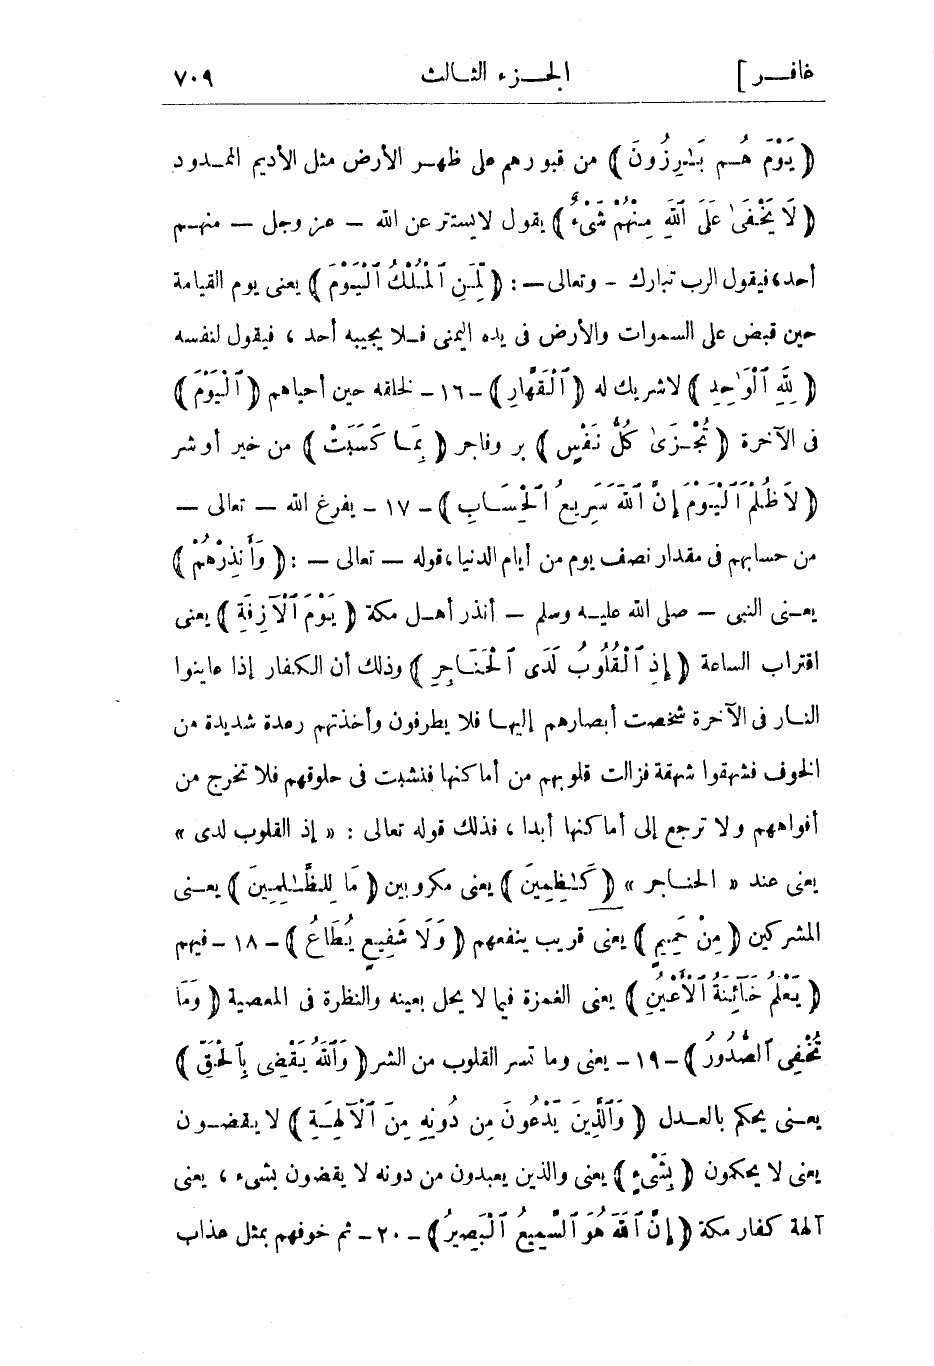 غافر ]
الجزء الثالث
٧٠٩
( يَوْمَ هُم بَـٰرِزُونَ ) من قبورهم على ظهر الأرض مثل الأديم الممدود
( لَا يَخْفَىٰ عَلَى ٱللَّهِ مِنْهُمْ شَىْءٌ ) يقول لايستتر عن الله — عز وجل — منهم
أحد، فيقول الرب تبارك - وتعالى — : ( لِّمَنِ ٱلْمُلْكُ ٱلْيَوْمَ ) يعنى يوم القيامة
حين قبض على السموات والأرض فى يده اليمنى فلا يجيبه أحد ، فيقول لنفسه
( لِلَّهِ ٱلْوَٰحِدِ ) لاشريك له ( ٱلْقَهَّارِ ) - ١٦ - لخلقه حين أحياهم ( ٱلْيَوْمَ )
فى الآخرة ( تُجْزَىٰ كُلُّ نَفْسٍ ) بر وفاجر ( بِمَا كَسَبَتْ ) من خير أو شر
( لَا ظُلْمَ ٱلْيَوْمَ إِنَّ ٱللَّهَ سَرِيعُ ٱلْحِسَابِ ) - ١٧ - يفرغ الله — تعالى —
من حسابهم فى مقدار نصف يوم من أيام الدنيا، قوله — تعالى — : ( وَأَنذِرْهُمْ )
يعنى النبى — صلى الله عليه وسلم — أنذر أهل مكة ( يَوْمَ ٱلْآزِفَةِ ) يعنى
اقتراب الساعة ( إِذِ ٱلْقُلُوبُ لَدَى ٱلْحَنَاجِرِ ) وذلك أن الكفار إذا عاينوا
النار فى الآخرة شخصت أبصارهم إليها فلا يطرفون وأخذتهم رعدة شديدة من
الخوف فشهقوا شهقة فزالت قلوبهم من أماكنها فنشبت فى حلوقهم فلا تخرج من
أفواههم ولا ترجع إلى أماكنها أبدا ، فذلك قوله تعالى : « إذ القلوب لدى »
يعنى عند « الحناجر » ( كَـٰظِمِينَ ) يعنى مكروبين ( مَا لِلظَّـٰلِمِينَ ) يعنى
المشركين ( مِنْ حَمِيمٍ ) يعنى قريب ينفعهم ( وَلَا شَفِيعٍ يُطَاعُ ) - ١٨ - فيهم
( يَعْلَمُ خَآئِنَةَ ٱلْأَعْيُنِ ) يعنى الغمزة فيما لا يحل بعينه والنظرة فى المعصية ( وَمَا
تُخْفِى ٱلصُّدُورُ ) - ١٩ - يعنى وما تسر القلوب من الشر ( وَٱللَّهُ يَقْضِى بِٱلْحَقِّ )
يعنى يحكم بالعدل ( وَٱلَّذِينَ يَدْعُونَ مِن دُونِهِ مِنَ ٱلْآلِهَةِ ) لا يقضون
يعنى لا يحكمون ( بِشَىْءٍ ) يعنى والذين يعبدون من دونه لا يقضون بشىء ، يعنى
آلهة كفار مكة ( إِنَّ ٱللَّهَ هُوَ ٱلسَّمِيعُ ٱلْبَصِيرُ ) - ٢٠ - ثم خوفهم بمثل عذاب